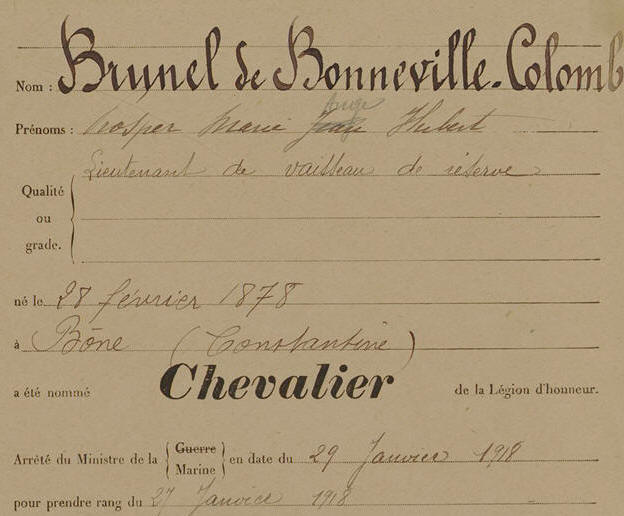 Nom : Brunel de Bonneville-Colomb
Prénoms : Prosper Marie Ange Jean Hubert
Lieutenant de vaisseau de réserve
Qualité
ou
grade.
né le 28 février 1878
à Bône (Constantine)
a été nommé Chevalier de la Légion d'honneur.
Arrêté du Ministre de la { Guerre Marine } en date du 29 Janvier 1918
pour prendre rang du 27 Janvier 1918